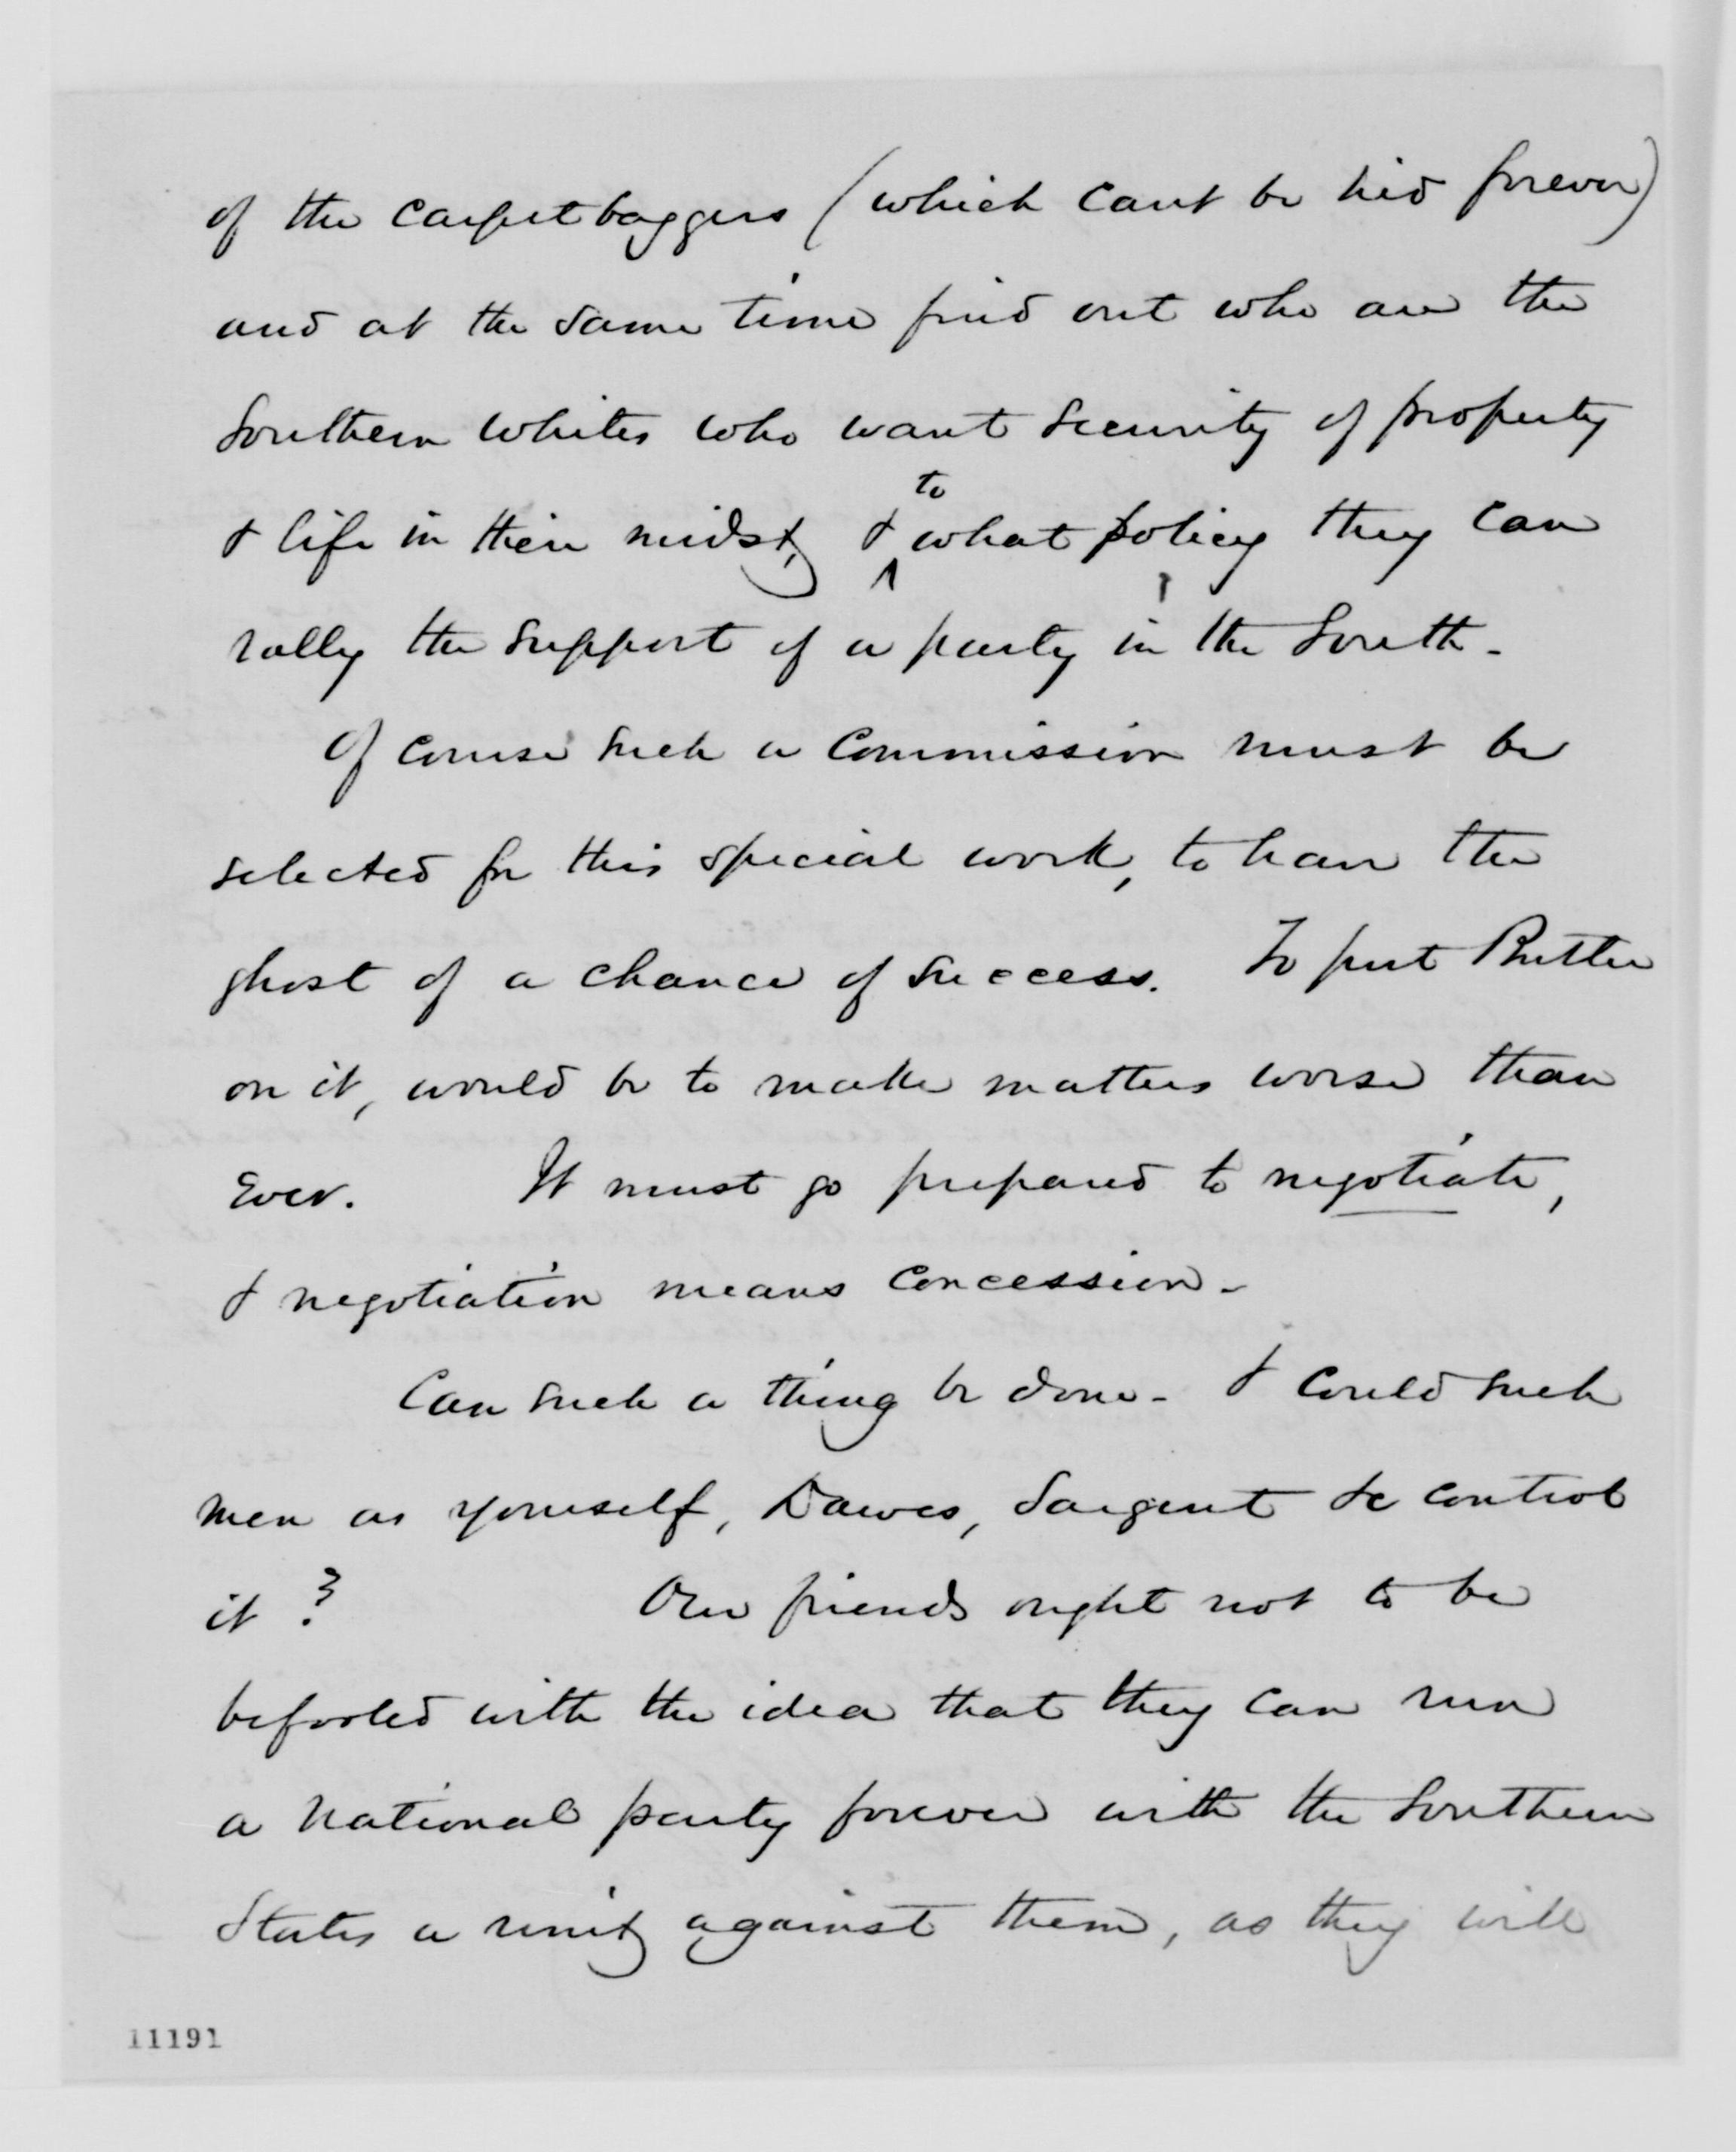 of the carpetbaggers (which cant be hid forever)
and at the same time find out who are the
Southern whites who want security of property
& life in their midst, & to what policy they can
rally the support of a party in the South -
Of course such a Commission must be
selected for this special work, to have the
ghost of a chance of success. To put Butler
on it, would be to make matters worse than
ever. It must go prepared to negotiate,
& negotiation means concession -
Can such a thing be done - & could such
men as yourself, Dawes, Sargent &c control
it? Our friends ought not to be
befooled with the idea that they can run
a national party forever with the Southern
States a unit against them, as they will
11191